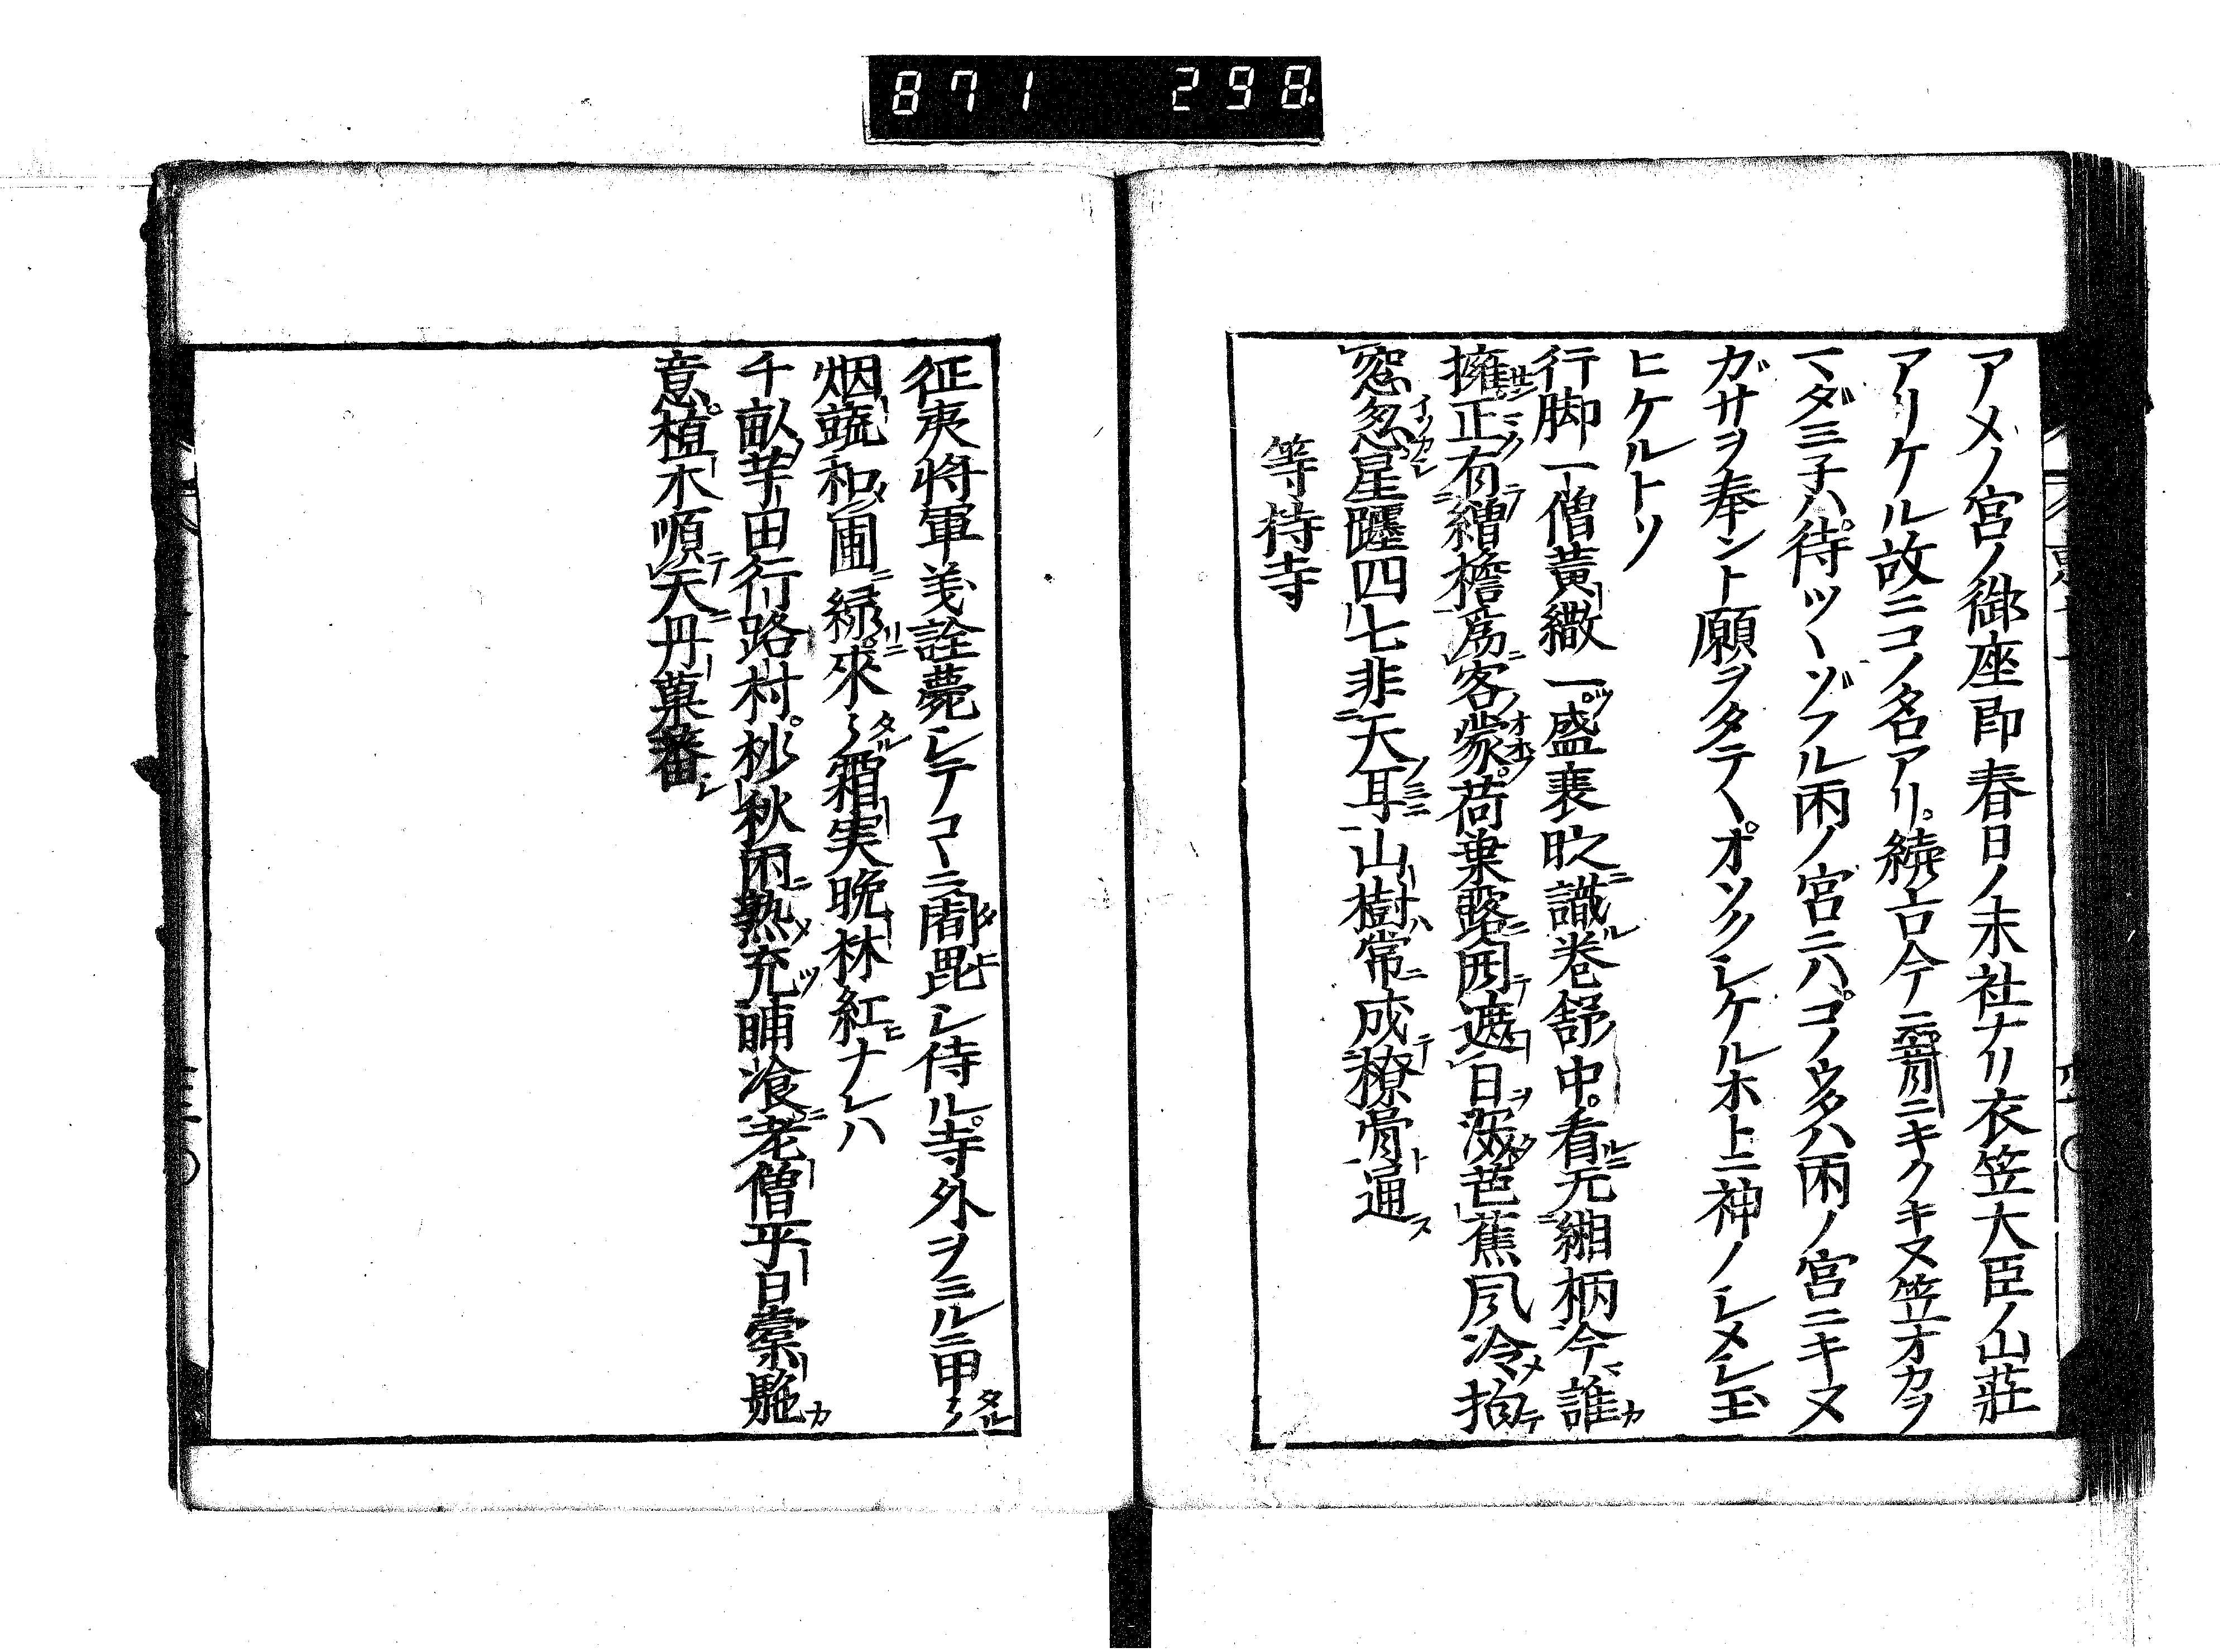 871 298
アメノ宮ノ御座即春日ノ末社ナリ衣笠大臣ノ山荘
アリケル故ニコノ名アリ続古今ニ霄月ニキクキヌ笠オカヲ
マダミ子ハ待ツヽゾフル雨ノ宮ニハコノウタハ雨ノ宮ニキヌ
ガサヲ奉ント願ヲタテヽオソクシケルホトニ神ノシメシ玉
ヒケルトソ
行脚一僧黄繖一盛衰時識巻舒中看元緗柄今誰
擁正有繒檐為客蒙荷葉露団遮日 芭蕉風冷拍
窓怱星躔四七非天耳山樹常成橑骨通
等持寺
征夷将軍義詮薨シテコヽニ闍毘シ侍ル寺外ヲミルニ甲々
烟蔬和圃緑来々霜実晩林紅ナレハ
千畝芋田行路村 秋雨熟充晡飡老僧平日橐駞
意植木順天丹菓蕃